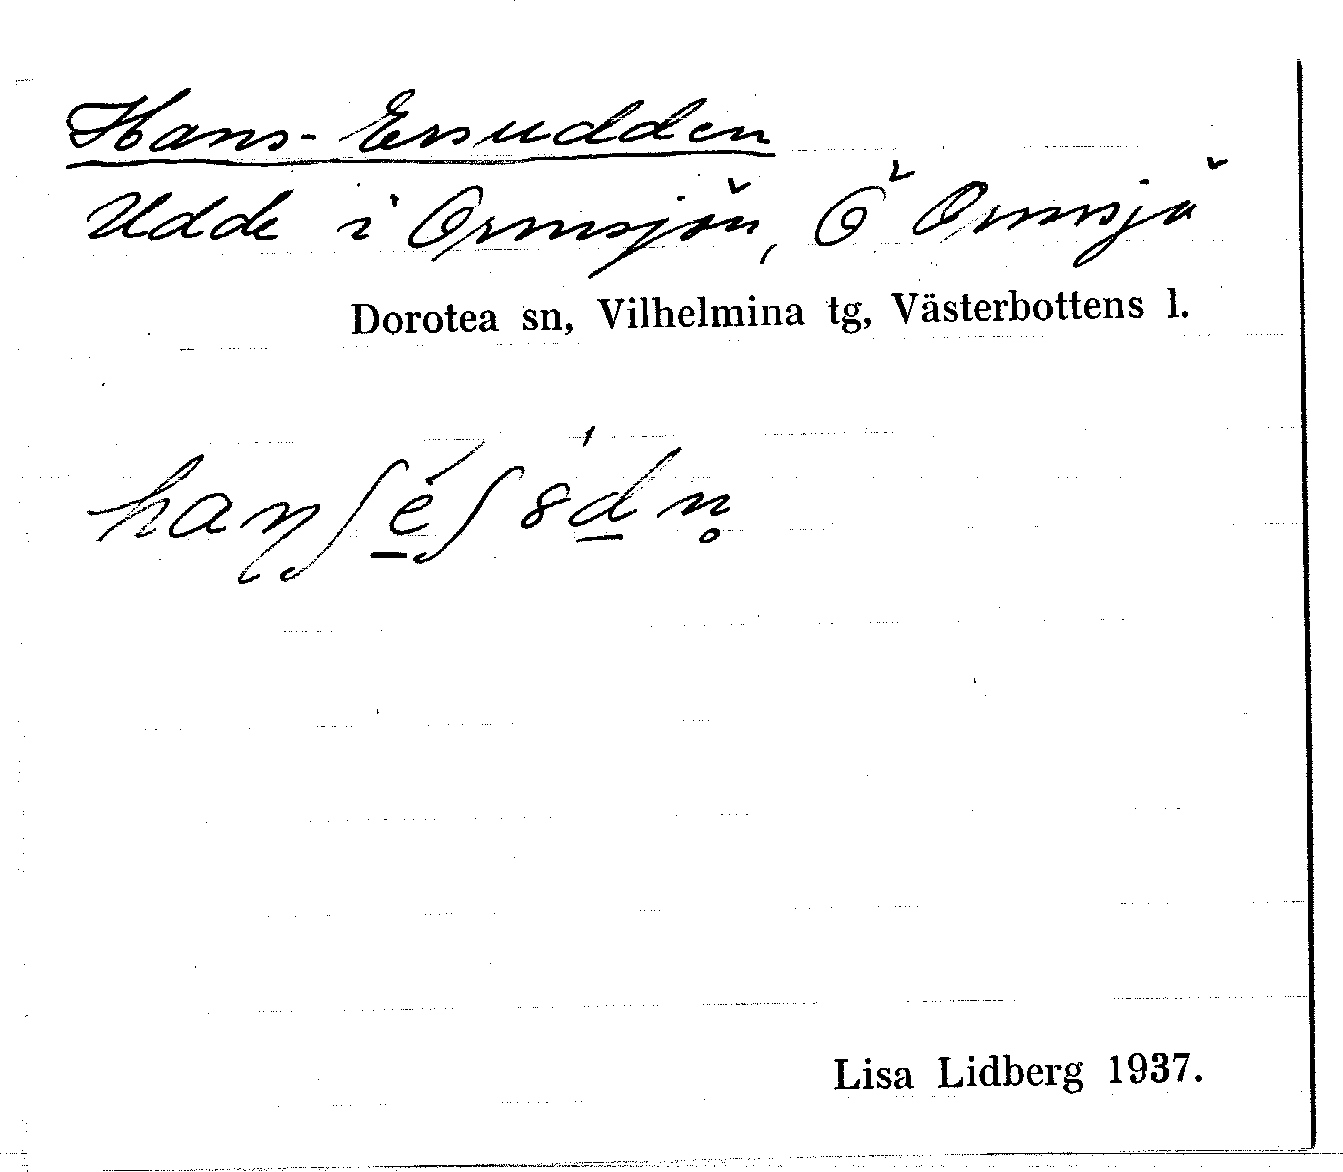 Hans-Ersudden
Udde i Ormsjön, Ö Ormsjö
Dorotea sn, Vilhelmina tg, Västerbottens l.
Lisa Lidberg 1937.